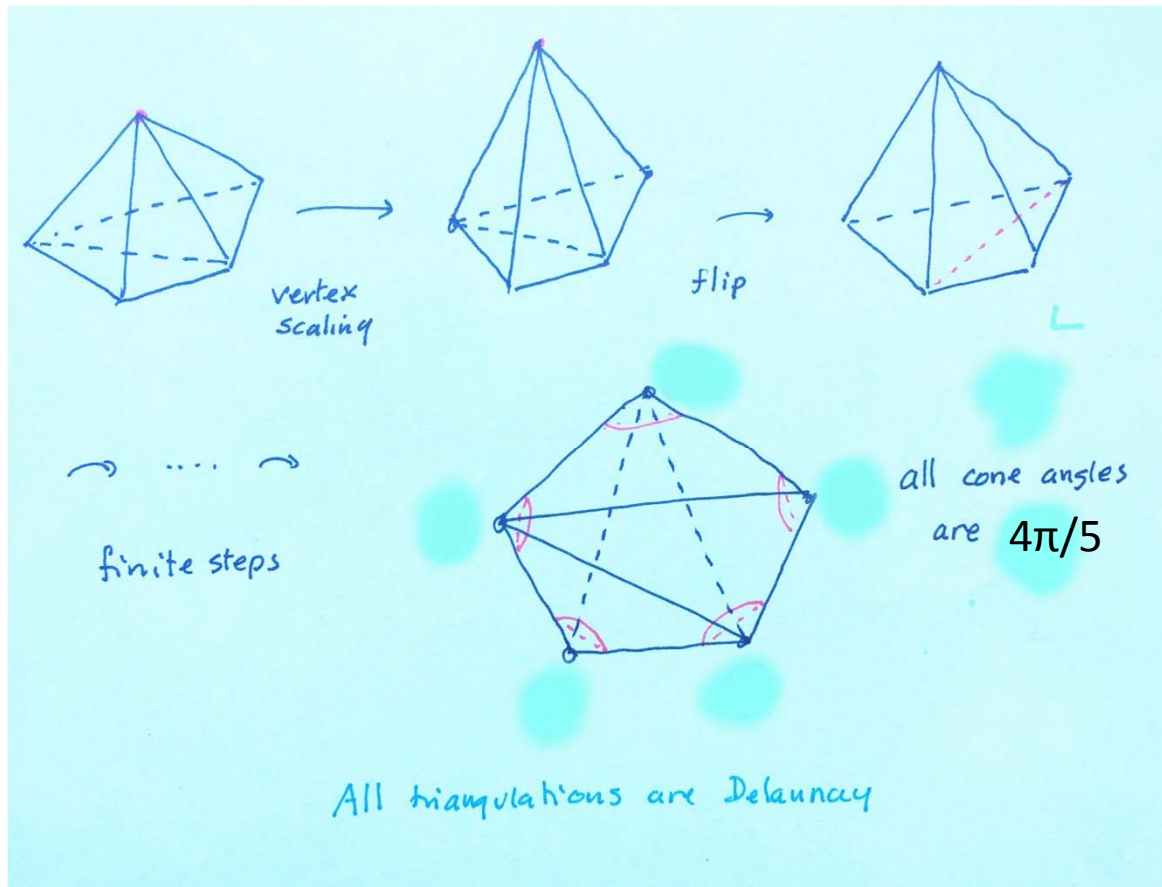 vertex
scaling
flip
finite steps
all cone angles
are 4π/5
All triangulations are Delaunay